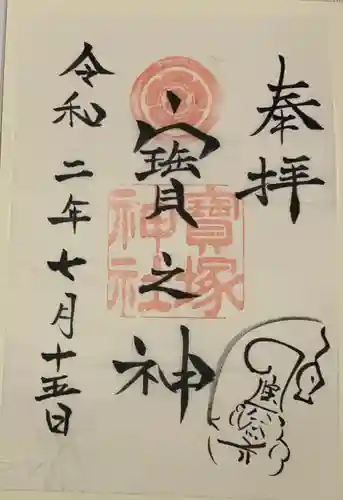 奉拝
寳之神
寳塚
神社
令和二年七月十五日